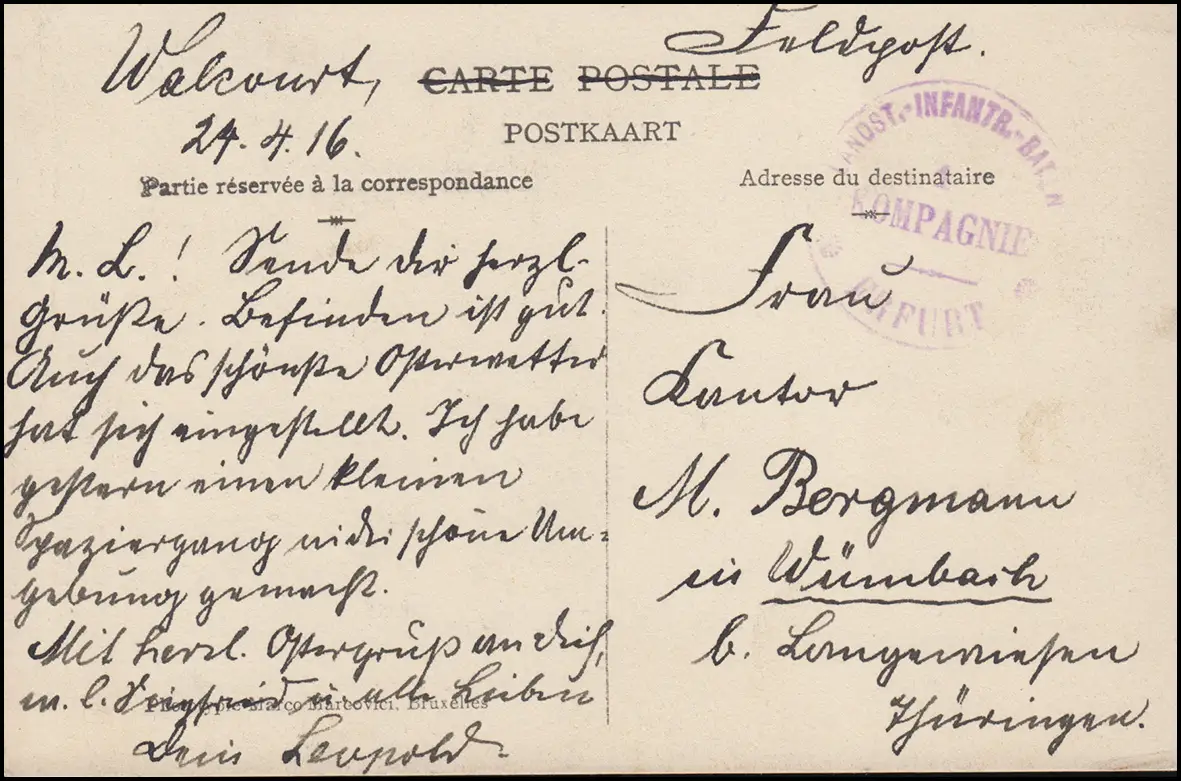 Walcourt,
24. 4. 16.
Feldpost.
CARTE POSTALE
POSTKAART
Partie réservée à la correspondance
Adresse du destinataire
LANDST.-INFANTR.-BATLN
KOMPAGNIE
ERFURT
M. L.! Sende dir herzl.
Grüße. Befinden ist gut.
Auch das schönste Osterwetter
hat sich eingestellt. Ich habe
gestern einen kleinen
Spaziergang in die schöne Um=
gebung gemacht.
Mit herzl. Ostergruß an dich,
m. l. Siegfried u. alle Lieben
Marco Marcovici, Bruxelles
Dein Leopold.
Frau
Kantor
M. Bergmann
in Wümbach
b. Langewiesen
Thüringen.